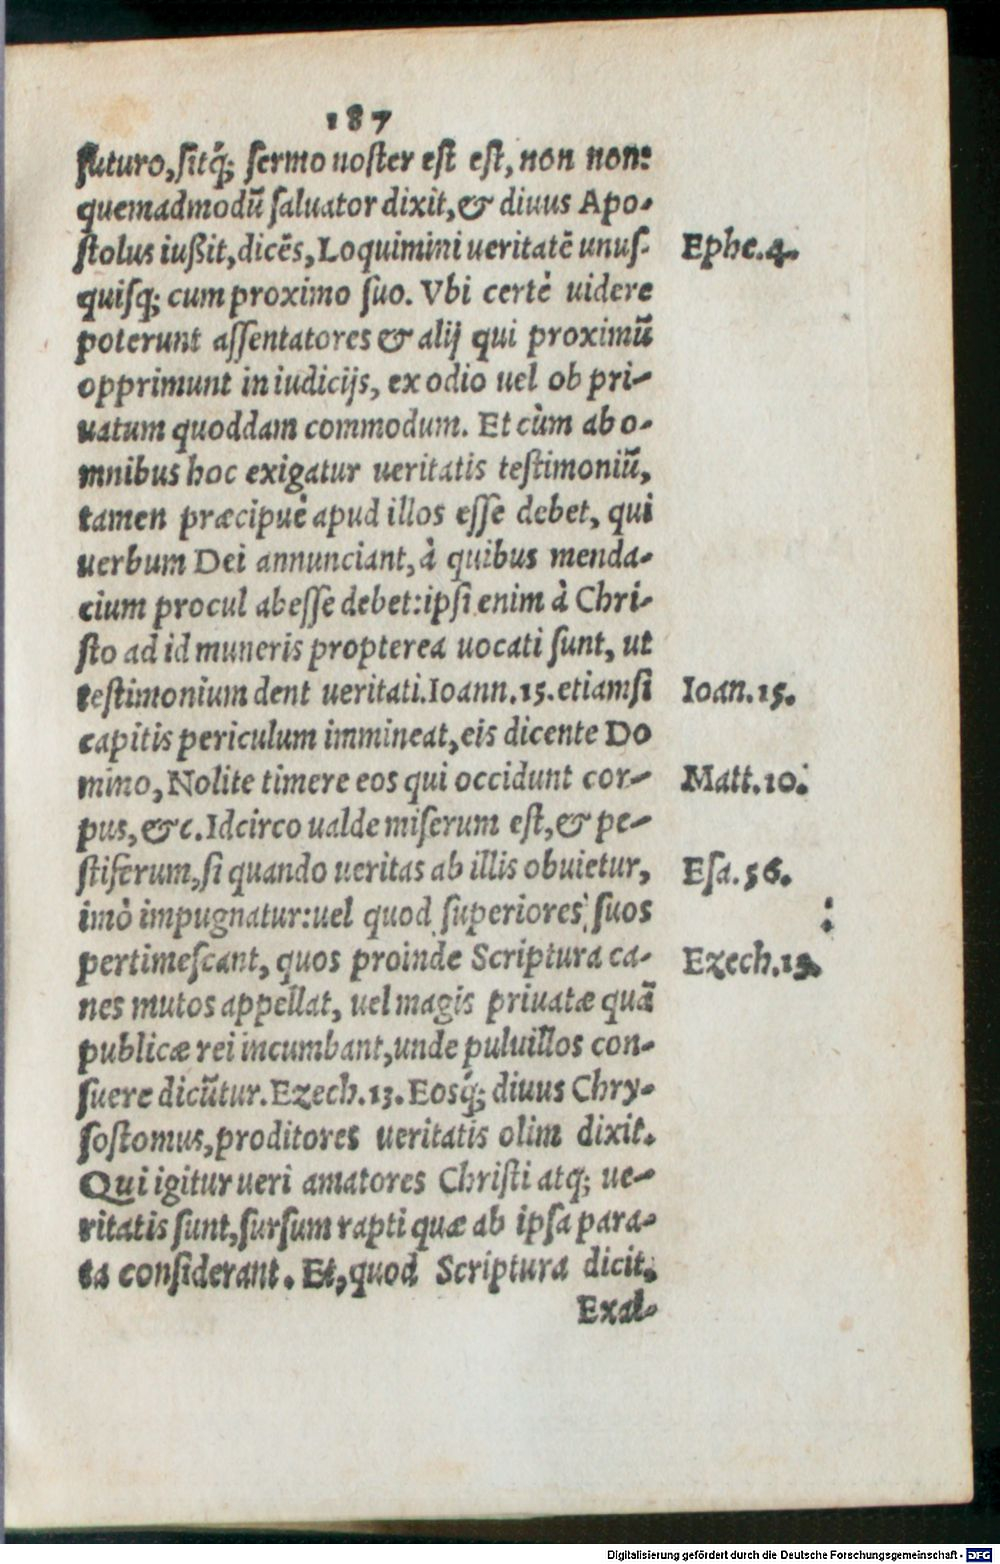 187
futuro, sitq́; sermo noster est est, non non:
quemadmodū saluator dixit, & diuus Apo-
stolus iußit, dicēs, Loquimini ueritatē unus-
Ephe.4.
quisq; cum proximo suo. Vbi certè uidere
poterunt assentatores & alij qui proximū
opprimunt in iudicijs, ex odio uel ob pri-
uatum quoddam commodum. Et cùm ab o-
mnibus hoc exigatur ueritatis testimoniū,
tamen præcipuè apud illos esse debet, qui
uerbum Dei annunciant, à quibus menda-
cium procul abesse debet: ipsi enim à Chri-
sto ad id muneris propterea uocati sunt, ut
testimonium dent ueritati. Ioann.15. etiamsi
Ioan.15.
capitis periculum immineat, eis dicente Do
mino, Nolite timere eos qui occidunt cor-
Matt.10.
pus, &c. Idcirco ualde miserum est, & pe-
stiferum, si quando ueritas ab illis obuietur,
Esa.56.
imò impugnatur: uel quod superiores suos
pertimescant, quos proinde Scriptura ca-
Ezech.13.
nes mutos appellat, uel magis priuatæ quā
publicæ rei incumbant, unde puluillos con-
suere dicūtur. Ezech.13. Eosq́; diuus Chry-
sostomus, proditores ueritatis olim dixit.
Qui igitur ueri amatores Christi atq; ue-
ritatis sunt, sursum rapti quæ ab ipsa para-
ta considerant. Et, quod Scriptura dicit.
Exal-
Digitalisierung gefördert durch die Deutsche Forschungsgemeinschaft - DFG